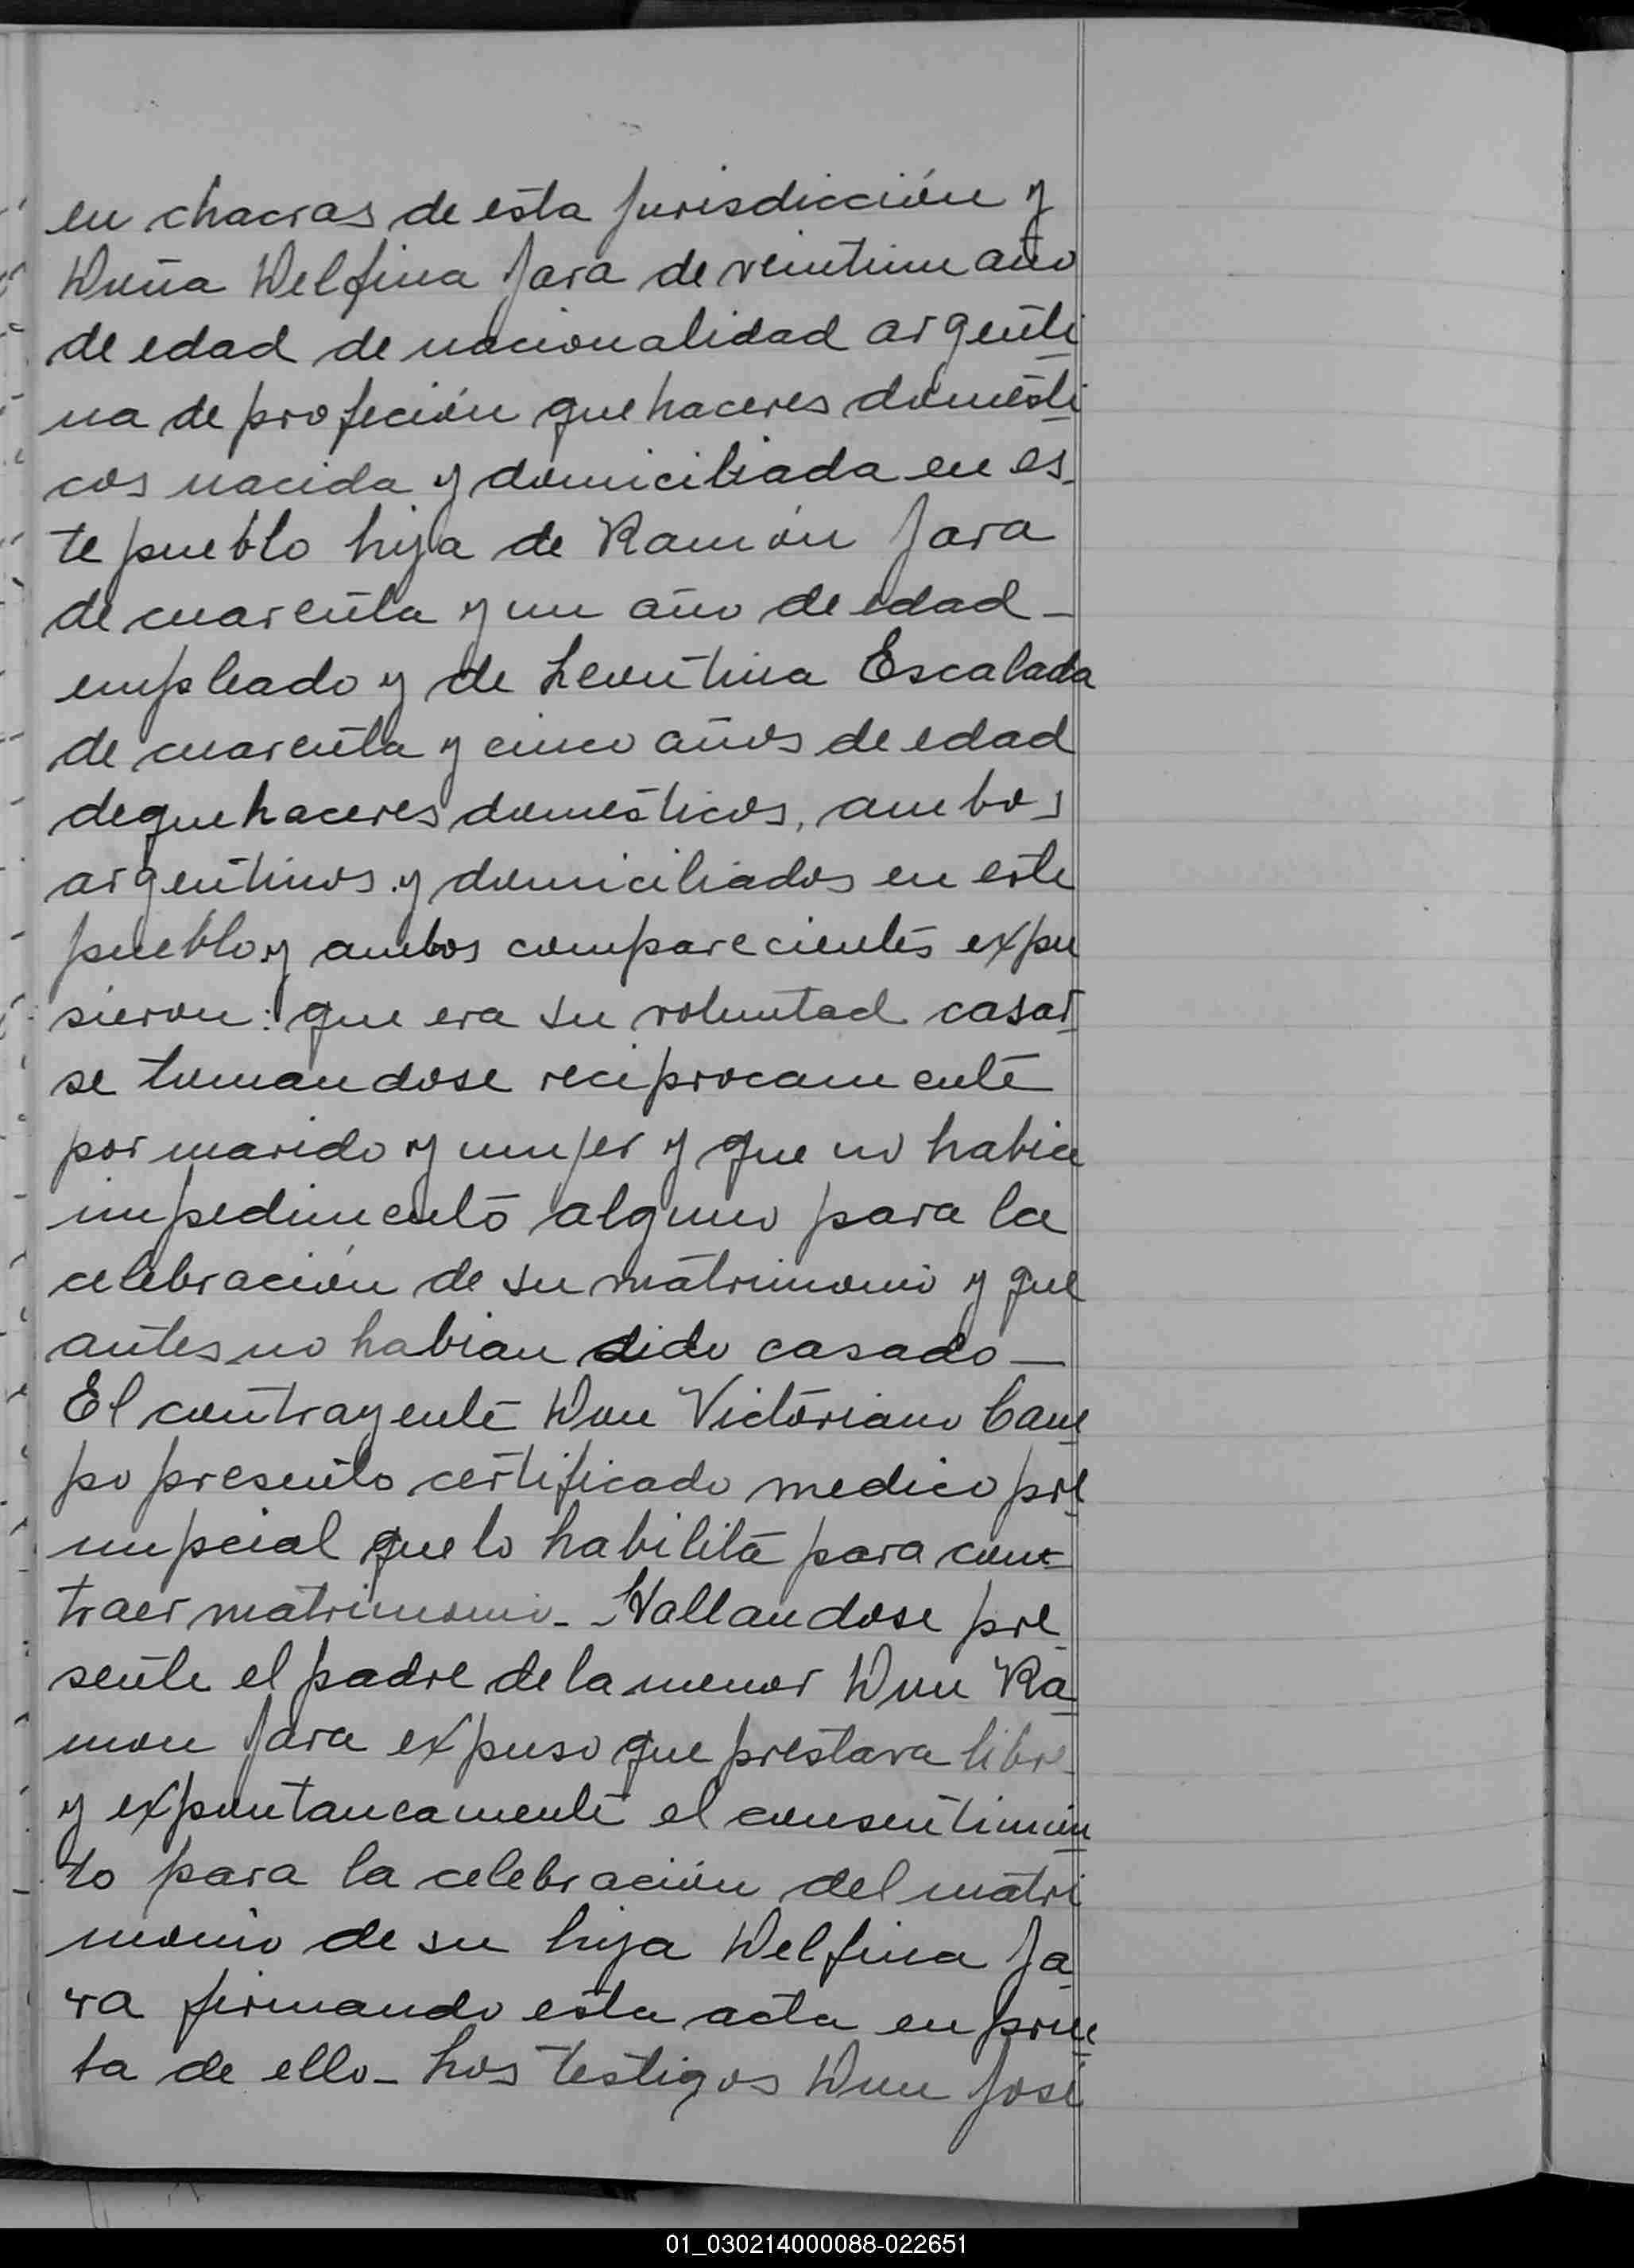 en chacras de esta Jurisdicción y
Doña Delfina Jara de veintiun año
de edad de nacionalidad argenti
na de profeción quehaceres domésti
cos nacida y domiciliada en es_
te pueblo hija de Ramón Jara
de cuarenta y un año de edad_
empleado y de Leontina Escalada
de cuarenta y cinco años de edad
de quehaceres domésticos, ambos
argentinos y domiciliados en este
pueblo y ambos comparecientes expu
sieron: que era su voluntad casar
se tomandose reciprocamente
por marido y mujer y que no habia
impedimento alguno para la
celebración de su matrimonio y que
antes no habian sido casado_
El contrayente Don Victoriano Cam
po presento certificado medico pre
nupcial que lo habilita para con=
traer matrimonio_ Hallandose pre_
sente el padre de la menor Don Ra
mon Jara expuso que prestava libre
y expontaneamente el consentimien
to para la celebración del matri
monio de su hija Delfina Ja
ra firmando esta acta en prue
ba de ello_ Los testigos Don José
01_030214000088-022651